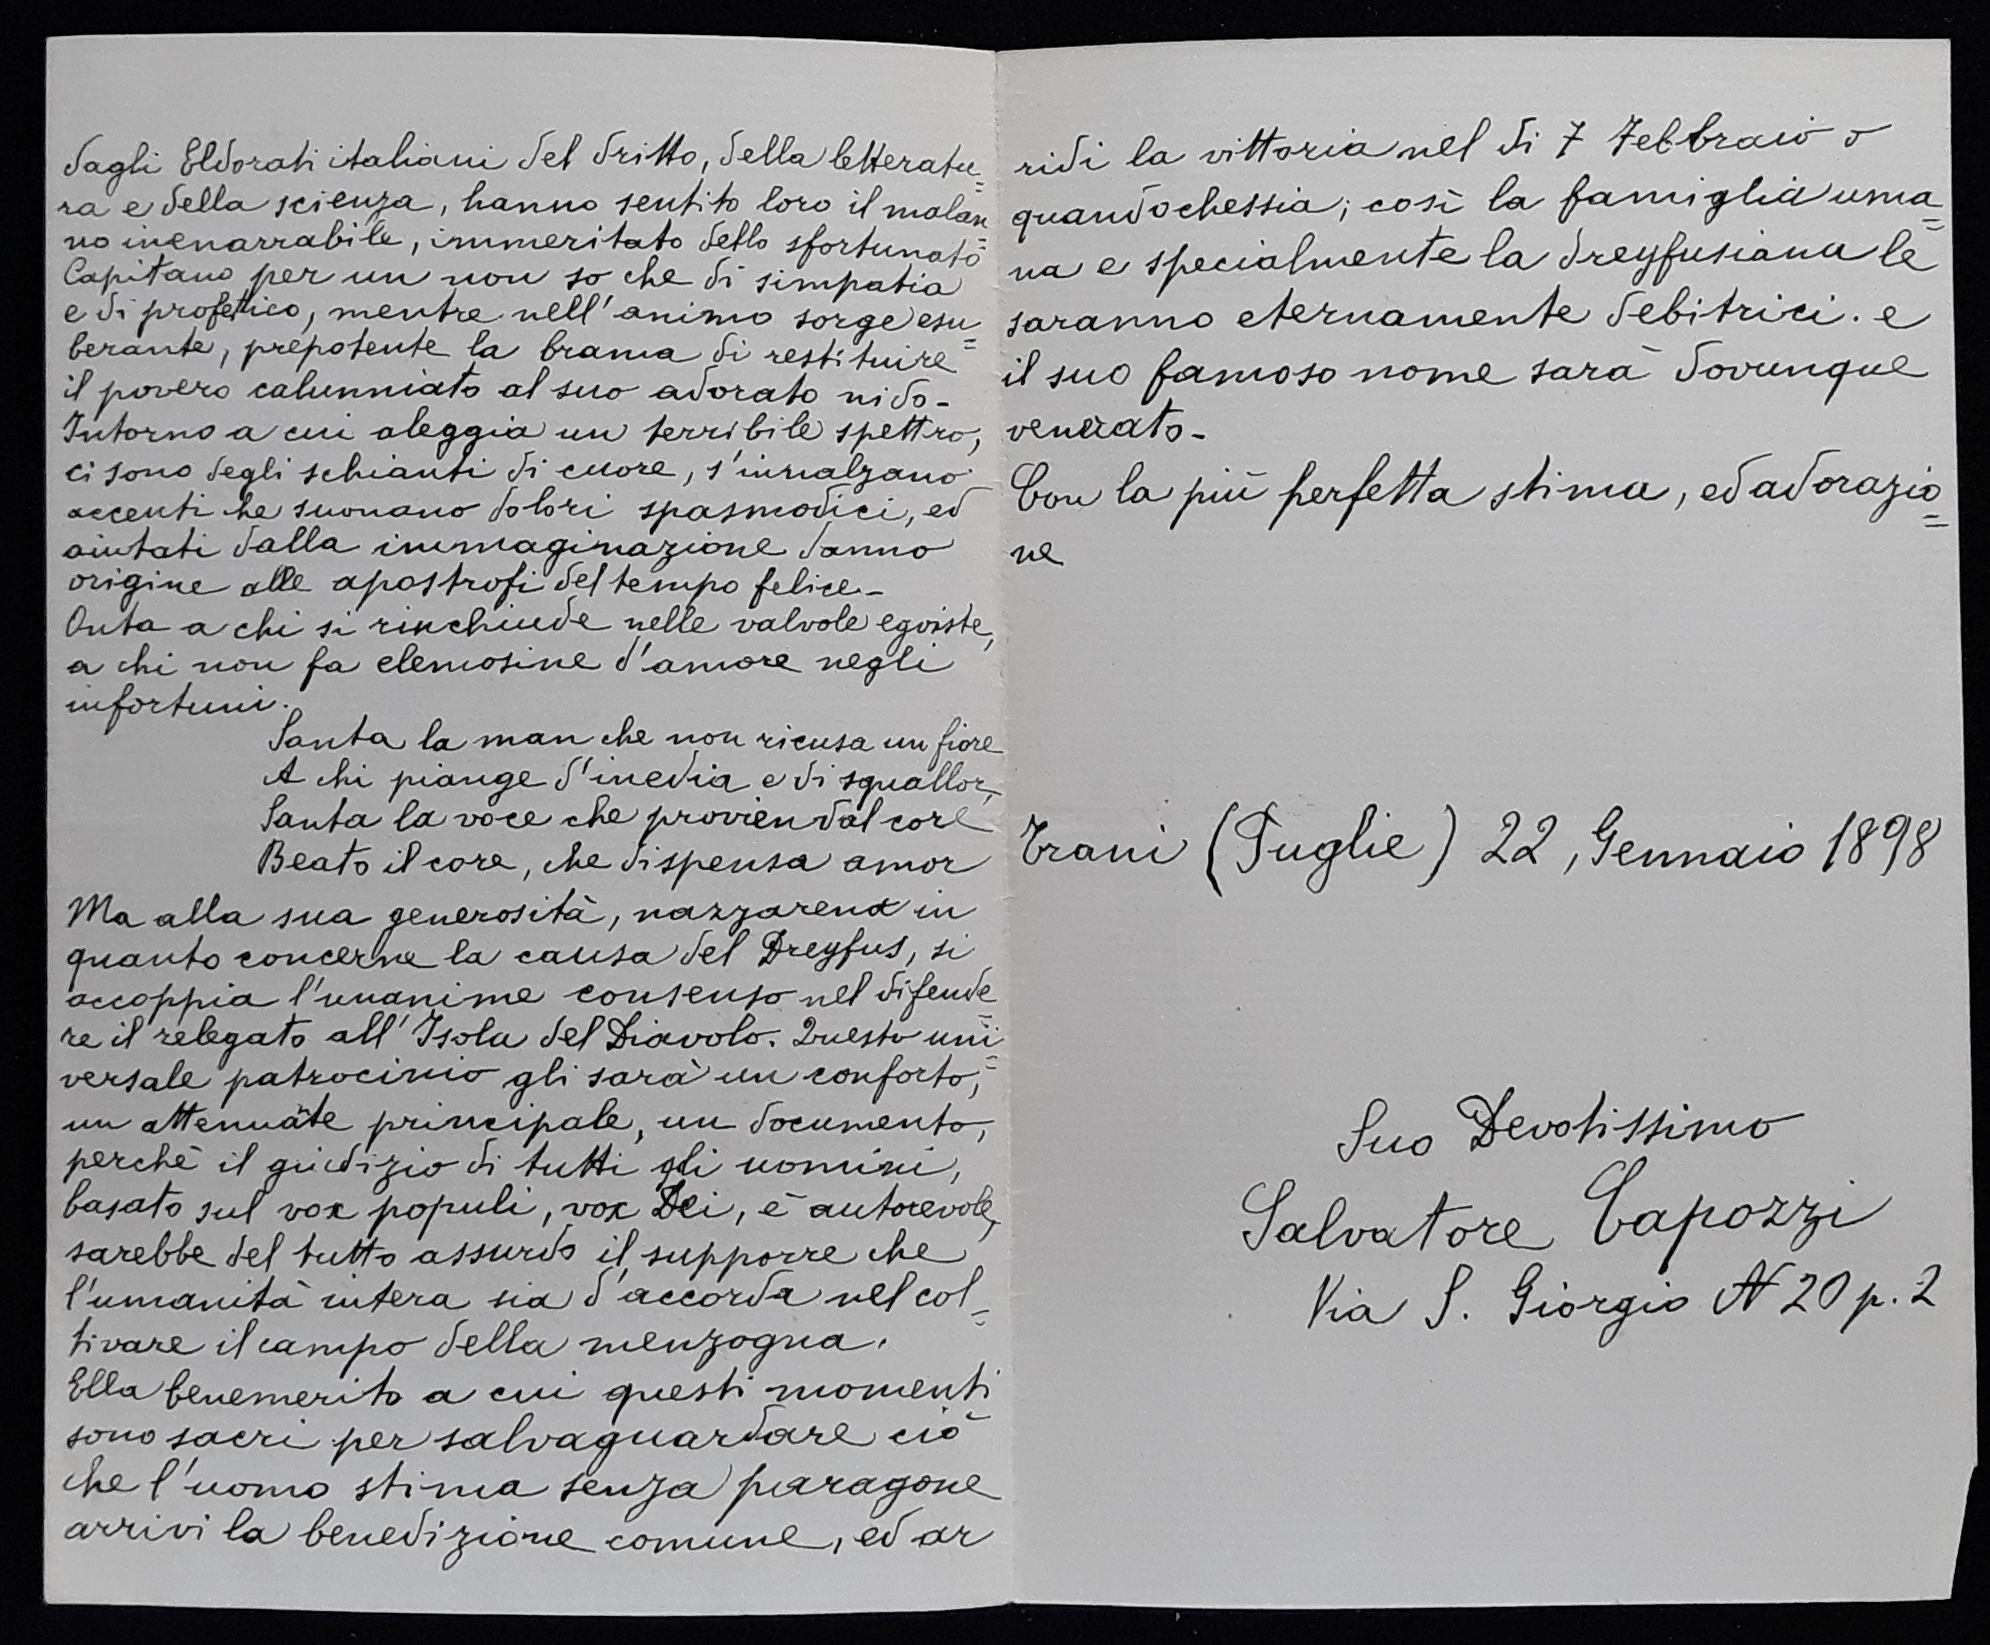 dagli Eldorati italiani del dritto, della letteratu=
ra e della scienza, hanno sentito loro il malan=
no inenarrabile, immeritato dello sfortunato
Capitano per un non so che di simpatia
e di profetico, mentre nell'animo sorge esu=
berante, prepotente la brama di restituire
il povero calunniato al suo adorato nido-
Intorno a cui aleggia un terribile spettro,
ci sono degli schianti di cuore, s'innalzano
accenti che suonano dolori spasmodici, ed
aiutati dalla immaginazione danno
origine alle apostrofi del tempo felice-
Onta a chi si rinchiude nelle valvole egoiste,
a chi non fa elemosine d'amore negli
infortuni.
Santa la man che non ricusa un fiore
A chi piange d'inedia e di squallor,
Santa la voce che provien dal core
Beato il core, che dispensa amor
Ma alla sua generosità, nazzarena in
quanto concerne la causa del Dreyfus, si
accoppia l'unanime consenso nel difende=
re il relegato all'Isola del Diavolo. Questo uni=
versale patrocinio gli sarà un conforto,
un attenuāte principale, un documento,
perchè il giudizio di tutti gli uomini,
basato sul vox populi, vox Dei, è autorevole,
sarebbe del tutto assurdo il supporre che
l'umanità intera sia d'accorda nel col=
tivare il campo della menzogna.
Ella benemerito a cui questi momenti
sono sacri per salvaguardare ciò
che l'uomo stima senza paragone
arrivi la benedizione comune, ed ar
ridi la vittoria nel dì 7 Febbraio o
quandochessia; così la famiglia uma=
na e specialmente la dreyfusiana le
saranno eternamente debitrici. e
il suo famoso nome sarà dovunque
venerato-
Con la più perfetta stima, ed adorazio=
ne
Trani (Puglie) 22, Gennaio 1898
Suo Devotissimo
Salvatore Capozzi
Via S. Giorgio N 20 p. 2